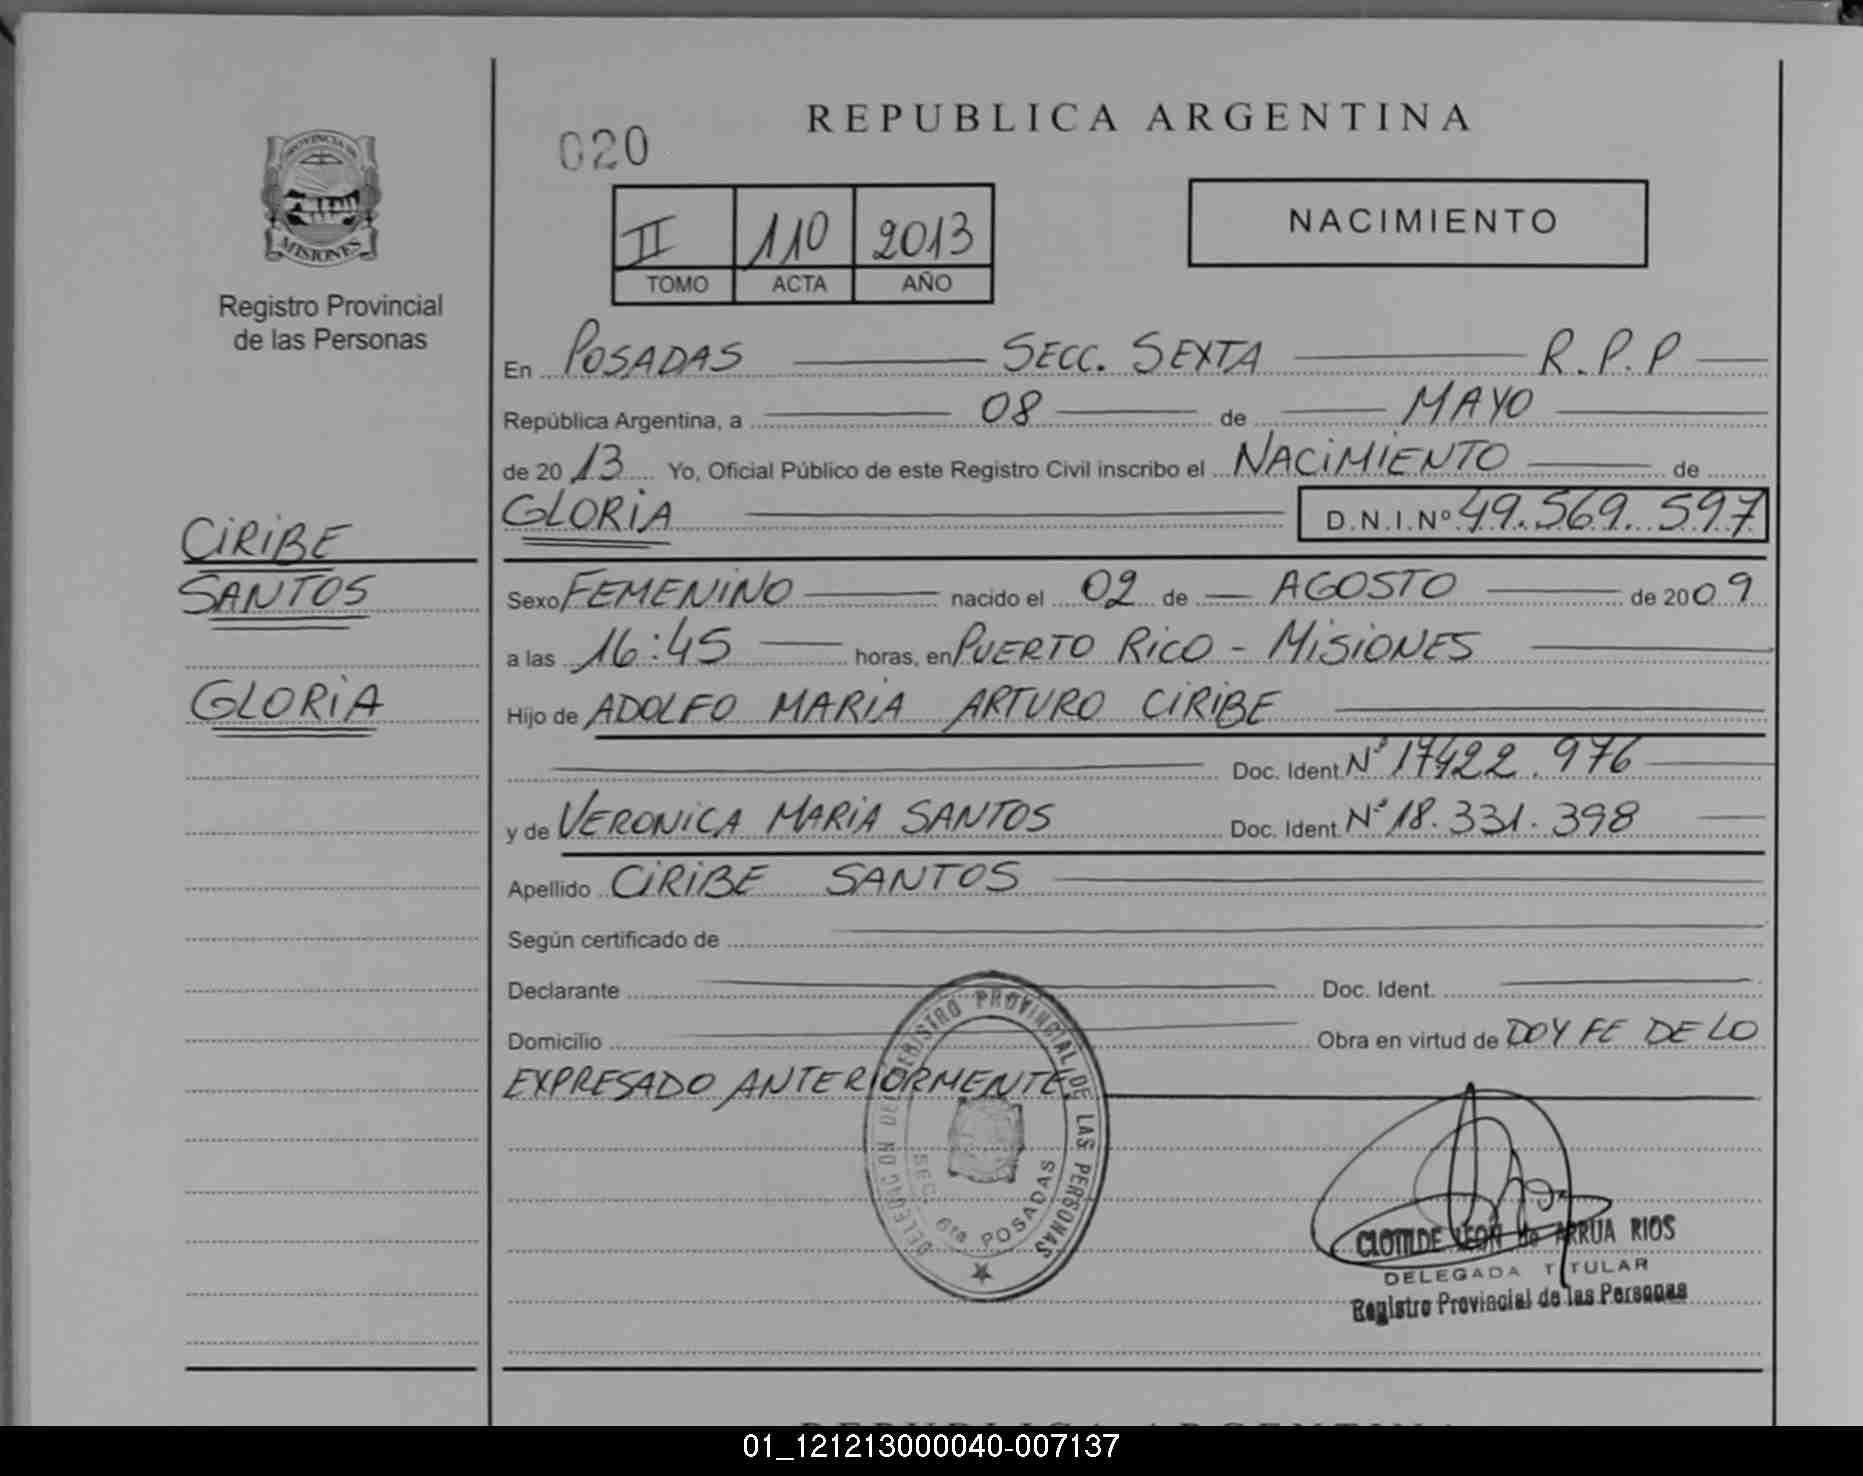 REPUBLICA ARGENTINA
020
PROVINCIA DE
MISIONES
Registro Provincial
de las Personas
II 110 2013
TOMO ACTA AÑO
NACIMIENTO
En POSADAS SECC. SEXTA R.P.P
República Argentina, a 08 de MAYO
de 20 13 Yo, Oficial Público de este Registro Civil inscribo el NACIMIENTO de
GLORIA D.N.I.Nº 49.569.597
CIRIBE
SANTOS
GLORIA
Sexo FEMENINO nacido el 02 de AGOSTO de 2009
a las 16:45 horas, en PUERTO RICO - MISIONES
Hijo de ADOLFO MARIA ARTURO CIRIBE
Doc. Ident. Nº 17422.976
y de VERONICA MARIA SANTOS Doc. Ident. Nº 18.331.398
Apellido CIRIBE SANTOS
Según certificado de
Declarante Doc. Ident.
Domicilio Obra en virtud de DOY FE DE LO
EXPRESADO ANTERIORMENTE
DELEGACION DEL REGISTRO PROVINCIAL DE LAS PERSONAS
SEC. 6ta POSADAS
CLOTILDE LEON de ARRUA RIOS
DELEGADA TITULAR
Registro Provincial de las Personas
REPUBLICA ARGENTINA
01_121213000040-007137